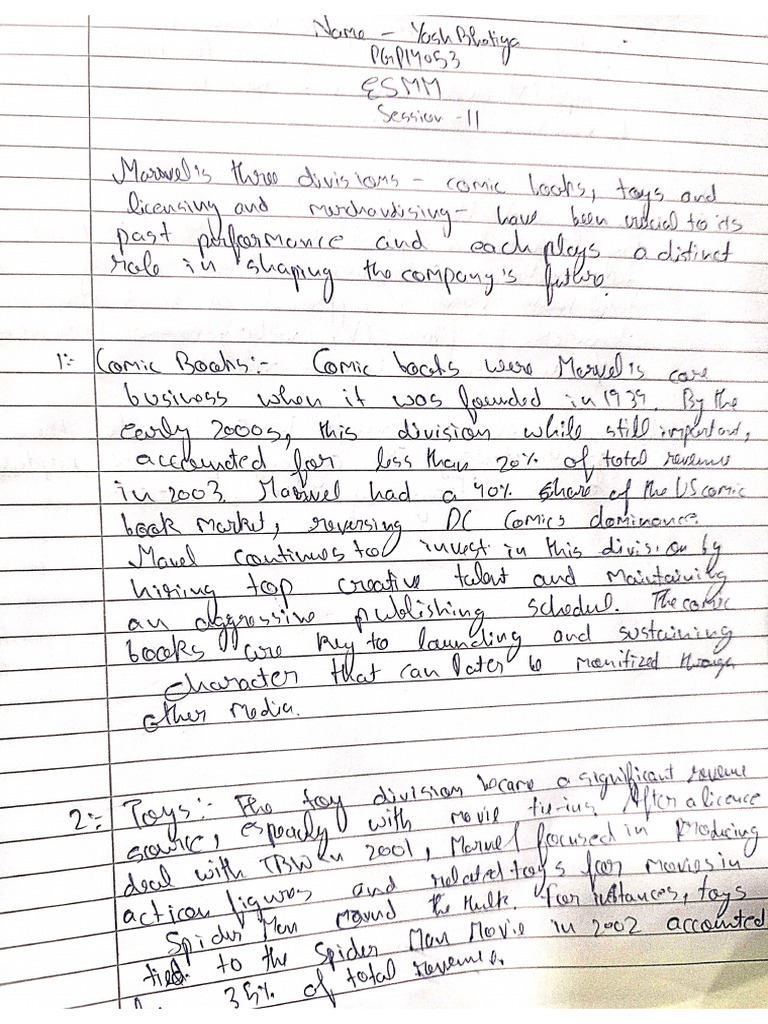 Name - Yash Bhatiya
PGP14053
ESMM
Session -11
Marvel's three divisions - comic books, toys and
licensing and merchandising - have been crucial to its
past performance and each plays a distinct
role in shaping the company's future.
1:- Comic Books:- Comic books were Marvel's core
business when it was founded in 1939. By the
early 2000s, this division while still important,
accounted for less than 20% of total revenue
in 2003. Marvel had a 40% share of the US comic
book market, reversing DC Comics dominance.
Mavel continues to invest in this division by
hiring top creative talent and maintaining
an aggressive publishing schedul. The comic
books are key to launding and sustaining
character that can later be monitized through
other media.
2:- Toys:- The toy division became a significant revenue
source, especially with movie tie-ins. After a licence
deal with TBW in 2001, Marvel focused in producing
action figures and related toys for movies in
Spider Man and the Hulk. For instances, toys
tied to the Spider Man Movie in 2002 accounted
35% of total revenue.